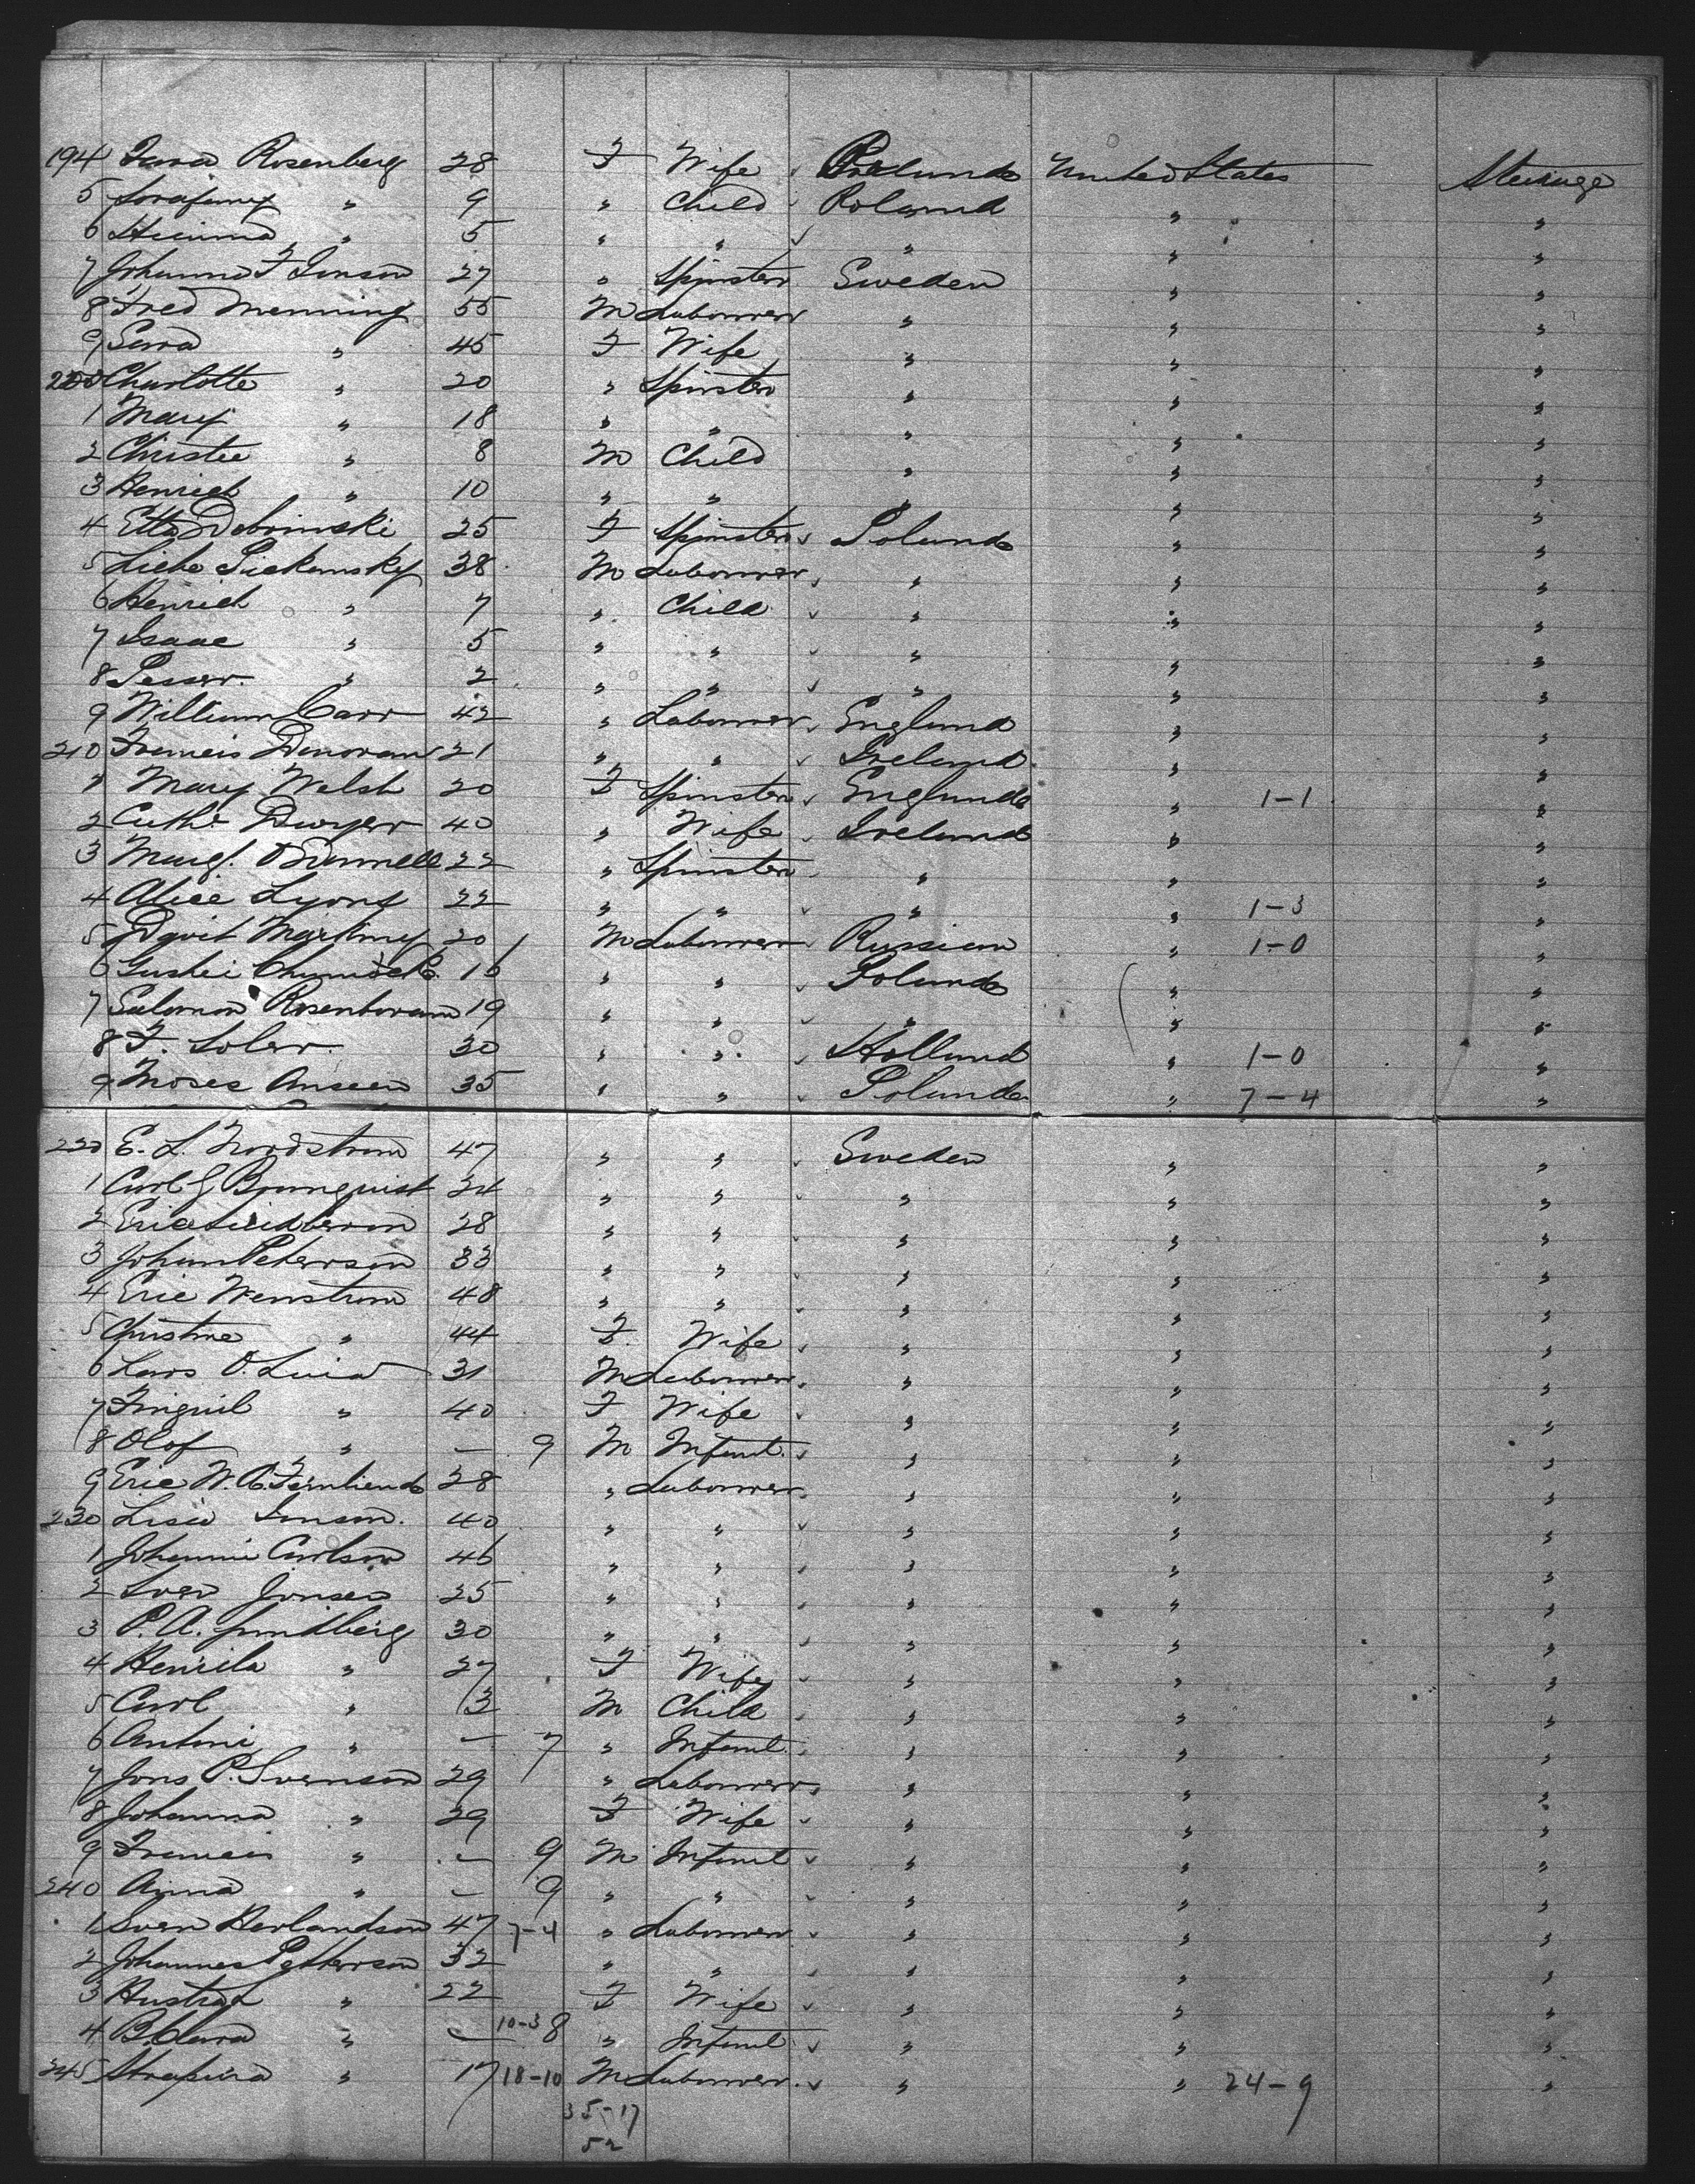 194 Sara Rosenberg 28 F Wife Poland United States Steerage
5 " 9 " Child Poland " "
6 " 5 " " " " "
7 Johanna F Jonson 27 " Spinster Sweden " "
8 Fred Menning 55 M Labourer " " "
9 Sara " 45 F Wife " " "
200 Charlotte " 20 " Spinster " " "
1 Mary " 18 " " " " "
2 Christee " 8 M Child " " "
3 Henrich " 10 " " " " "
4 Etta Dobrinski 25 F Spinster Poland " "
5 Liebe Siekemsky 38 M Labourer " " "
6 Henrich " 7 " Child " " "
7 Isaac " 5 " " " " "
8 Pesser " 2 " " " " "
9 William Carr 42 " Labourer England " "
210 Francis Donovan 21 " " Ireland " "
" Mary Welsh 20 F Spinster England " 1-1 "
2 Cath. Dwyer 40 " Wife Ireland " "
3 Marg. O'Donnell 22 " Spinster " " "
4 Alice Lyons 22 " " " " 1-3 "
5 20 M Labourer Russian " 1-0 "
6 16 " " Poland " "
7 Salomon Rosenboram 19 " " " " "
8 F. Soler 30 " " Holland " 1-0 "
9 Moses Anseen 35 " " Poland " 7-4 "
220 E. L. Nordstrom 47 " " Sweden " "
1 Carl G Blomquist 24 " " " " "
2 Eric 28 " " " " "
3 Johan Peterson 33 " " " " "
4 Eric Wenstrom 48 " " " " "
5 Christine " 44 F Wife " " "
6 Lars O. 31 M Labourer " " "
7 " 40 F Wife " " "
8 Olof " — 9 M Infant " " "
9 Eric W. A. 28 " Labourer " " "
230 Jonson 40 " " " " "
1 Johanni Carlson 46 " " " " "
2 Sven Jonsen 25 " " " " "
3 P. A. Lundberg 30 " " " " "
4 Henrila " 27 F Wife " " "
5 Carl " 3 M Child " " "
6 Antoni " — 7 " Infant " " "
7 Jons P. Svenson 29 " Labourer " " "
8 Johanna " 29 F Wife " " "
9 Francis " — 9 M Infant " " "
240 Anna " — 9 " " " " "
1 Sven Herlandson 47 7-4 " Labourer " " "
2 Johannes Petterson 32 " " " " "
3 " 22 F Wife " " "
4 B. Clara " — 10-3 8 " Infant " " "
245 " 17 18-10 M Labourer " " 24-9 "
35-17
52